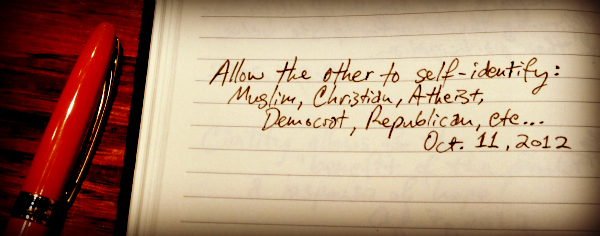 Allow the other to self-identify:
Muslim, Christian, Atheist,
Democrat, Republican, etc...
Oct. 11, 2012